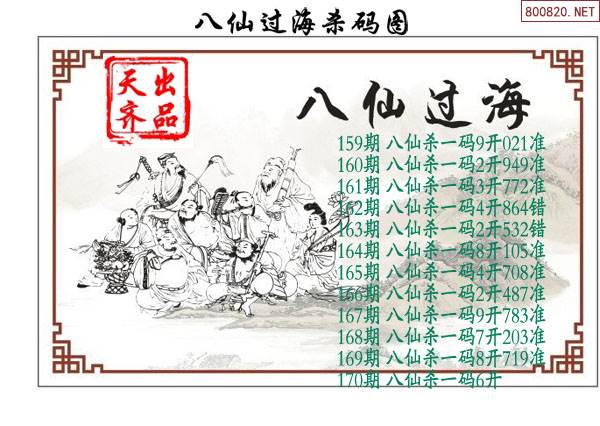 八仙过海杀码图
800820.NET
天齐出品
八仙过海
159期 八仙杀一码9开021准
160期 八仙杀一码2开949准
161期 八仙杀一码3开772准
162期 八仙杀一码4开864错
163期 八仙杀一码2开532错
164期 八仙杀一码8开105准
165期 八仙杀一码4开708准
166期 八仙杀一码2开487准
167期 八仙杀一码9开783准
168期 八仙杀一码7开203准
169期 八仙杀一码8开719准
170期 八仙杀一码6开